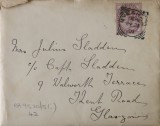 Mrs Julius Sladden
c/o Capt. Sladden
9 Walworth Terrace
Kent Road
Glasgow